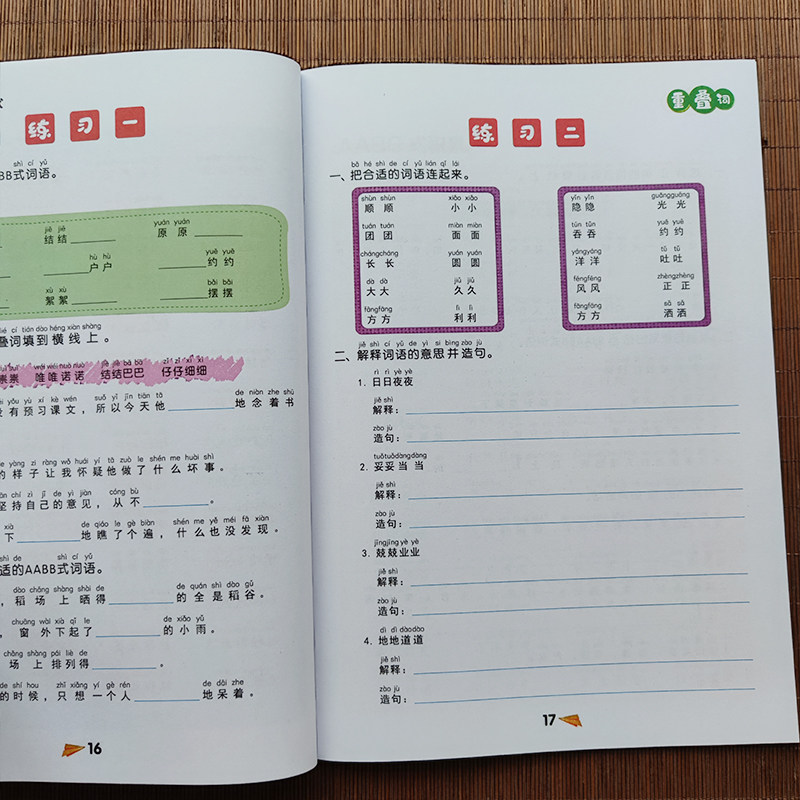 练 习 一
shì cí yǔ
BB式词语。
jiē jiē yuán yuán
结结______ 原 原______
hù hù yuē yuē
______户户 ______约约
xù xù bǎi bǎi
絮絮______ ______摆摆
cí tián dào héng xiàn shàng
叠词填到横线上。
唯唯诺诺 结结巴巴 仔仔细细
yǒu yù xí kè wén suǒ yǐ jīn tiān tā de niàn zhe shū
没有预习课文，所以今天他________地念着书
de yàng zi ràng wǒ huái yí tā zuò le shén me huài shì
的样子让我怀疑他做了什么坏事。
chí zì jǐ de yì jiàn cóng bù
坚持自己的意见，从不________。
xià de qiáo le gè biàn shén me yě méi fā xiàn
下________地瞧了个遍，什么也没发现。
shì de shì cí yǔ
适的AABB式词语。
dào chǎng shàng shài de quán shì dào gǔ
，稻场上晒得________的全是稻谷。
chuāng wài xià qǐ le de xiǎo yǔ
，窗外下起了________的小雨。
chǎng shàng pái liè de
场上排列得________。
de shí hou zhǐ xiǎng yí gè rén de dāi zhe
的时候，只想一个人________地呆着。
16
重叠词
练 习 二
bǎ hé shì de cí yǔ lián qǐ lái
一、把合适的词语连起来。
shùn shùn xiǎo xiǎo
顺 顺 小 小
tuán tuán miàn miàn
团 团 面 面
chángcháng yuán yuán
长 长 圆 圆
dà dà jiǔ jiǔ
大 大 久 久
fāngfāng lì lì
方 方 利 利
yǐn yǐn guāngguāng
隐 隐 光 光
tūn tūn yuē yuē
吞 吞 约 约
yángyáng tǔ tǔ
洋 洋 吐吐
fēngfēng zhèngzhèng
风 风 正 正
fāngfāng sǎ sǎ
方 方 洒 洒
jiě shì cí yǔ de yì si bìng zào jù
二、解释词语的意思并造句。
rì rì yè yè
1. 日日夜夜
jiě shì
解释：
zào jù
造句：
tuǒtuǒdàngdàng
2. 妥妥当当
jiě shì
解释：
zào jù
造句：
jīngjīng yè yè
3. 兢兢业业
jiě shì
解释：
zào jù
造句：
dì dì dàodào
4. 地地道道
jiě shì
解释：
zào jù
造句：
17